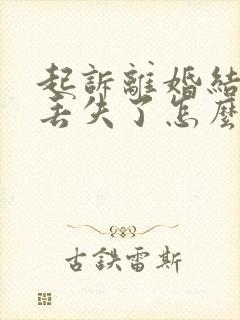 起訴離婚結
丟失了怎麼
古鉄雷斯